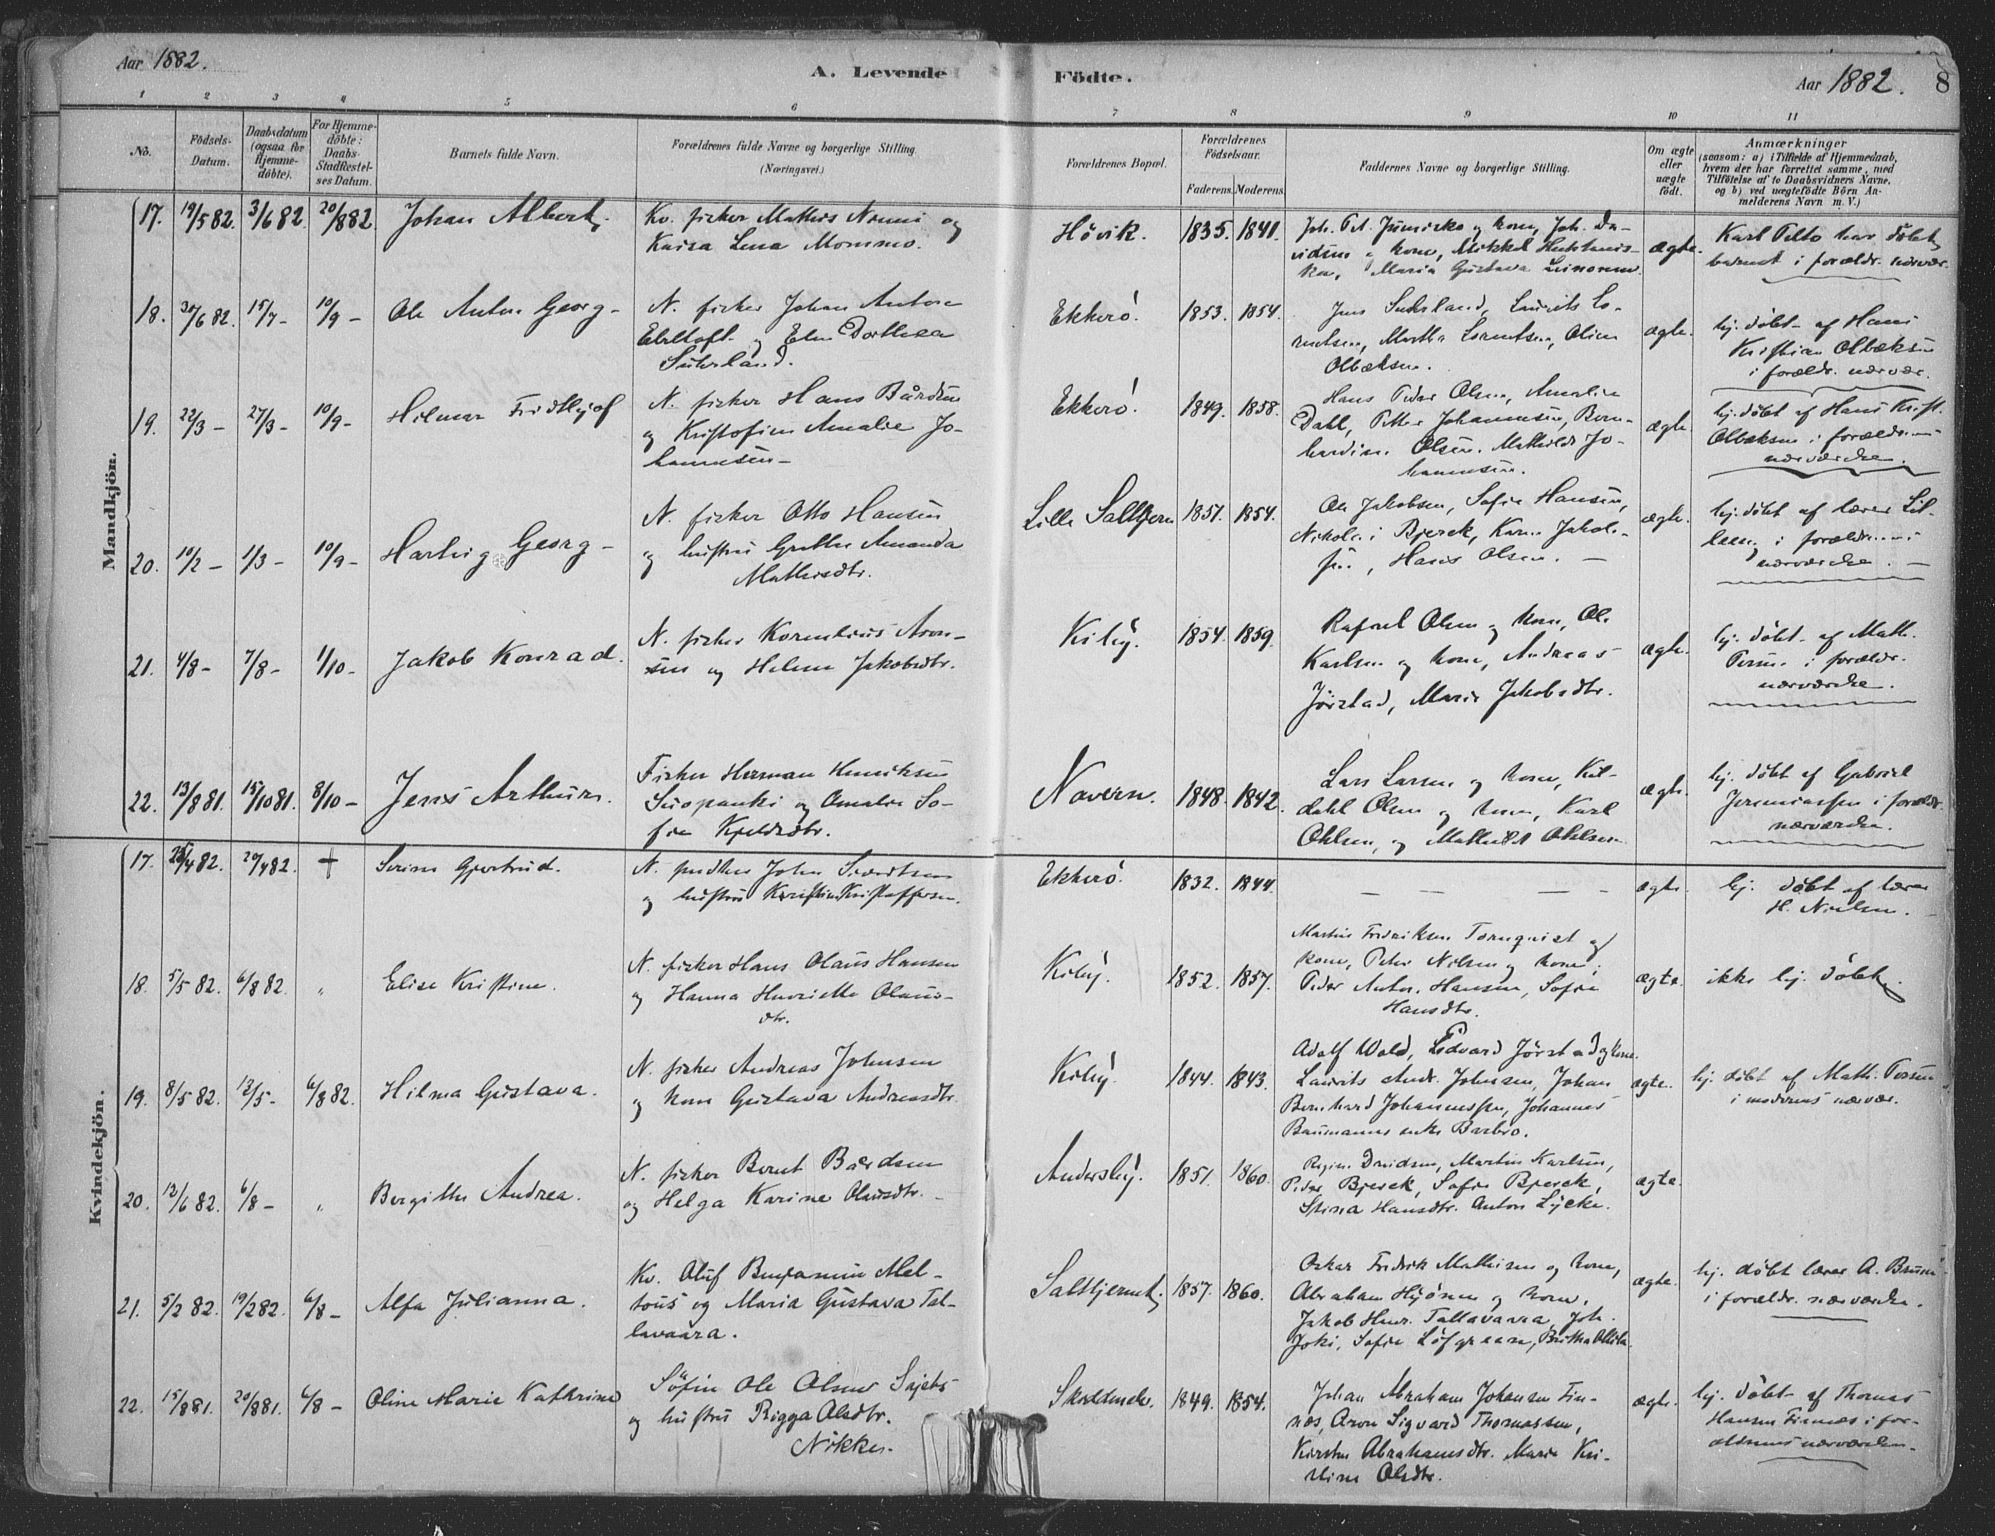 Aar 1882.
A. Levende Födte.
Aar 1882.
8
1 2 3 4 5 6 7 8 9 10 11
No.
Födsels-
Datum.
Daabsdatum
(ogsaa for
Hjemme-
döbte).
For Hjemme-
döbte:
Daabs-
Stadfestel-
ses Datum.
Barnets fulde Navn.
Forældrenes fulde Navne og borgerlige Stilling.
(Næringsvei.)
Forældrenes Bopæl.
Forældrenes
Födselsaar.
Faderens. Moderens.
Faddernes Navne og borgerlige Stilling.
Om ægte
eller
uægte
födt.
Anmærkninger
(saasom: a) i Tilfælde af Hjemmedaab,
hvem der har forrettet samme, med
Tilföielse af to Daabsvidners Navne,
og b) ved uægtefödte Börn An-
melderens Navn m. V.)
Mandkjön.
17. 19/5 82. 3/6 82 20/8 82 Johan Albert.
Kv. fisker Mathis Nenni og
Kaisa Lena Mommo.
Høvik. 1835. 1841.
Joh. Pet. Jumisko og kone, Joh. Da-
vidsen og kone, Mikkel
Maria Gustava
ægte.
Karl Pelto har døbt
barnet i forældr. nærvær.
18. 30/6 82. 15/7 - 10/9 - Ole Anton Georg -
N. fisker Johan Anton
Ebeltoft og Elen Dorthea
Suhrland.
Ekkerø. 1853. 1854.
Jens Suhrland, Laurits Lo-
rentsen, Martha Lorentsen, Oline
Olbæksen.
ægte.
hj. døbt af Hans
Kristian Olbæksen
i forældr. nærvær.
19. 22/3 - 27/3 - 10/9 - Hilmar Fridthjof
N. fisker Hans Bårdsen
og Kristofine Amalie Jo-
hannesen -
Ekkerø. 1849. 1858.
Hans Peder Olsen, Amalie
Dahl, Petter Johannesen, Bern-
hardine Olsen. Mathilde Jo-
hannesen.
ægte.
hj. døbt af Hans Krist.
Olbæksen i forældrenes
nærværelse.
20. 10/2 - 1/3 - 10/9 - Hartvig Georg -
N. fisker Otto Hansen
og hustru Grethe Amanda
Mathisdtr.
Lille Saltkjern 1851. 1854.
Ole Jakobsen, Sofie Hansen,
Nikolai Bjerck, Karen Jakob-
, Hans Olsen. -
ægte.
hj. døbt af lærer
i forældrenes
nærværelse. -
21. 4/8 - 7/8 - 1/10 - Jakob Konrad.
N. fisker Kornelius Aron-
sen og Helene Jakobsdtr.
Kiby. 1854. 1859.
Rafael Olsen og kone, Ole
Karlsen og kone, Andreas
Jørstad, Marie Jakobsdtr.
ægte.
hj. døbt af Math.
i forældr.
nærværelse.
22. 13/8 81. 15/10 81. 8/10 - Jens Arthur.
Fisker Herman Henriksen
Siopanki og Amalie So-
fie Kjeldsdtr.
Navern. 1848. 1842.
Lars Larsen og kone, Kil-
dahl Olsen og kone, Karl
Ohlsen, og Mathilde Ohlsen
ægte.
hj. døbt af Gabriel
Jeremiassen i forældr.
nærværelse.
Kvindekjön.
17. 4 82. 20/4 82. + Serine Gjertrud.
N. John Sivertsen
og hustru Kristine Kristoffersen.
Ekkerø. 1832. 1844.
— — — -
ægte.
hj. døbt af lærer
H. Nielsen.
18. 5/5 82. 6/8 82. " Elise Kristine.
N. fisker Hans Olaus Hansen
og Hanna Henriette Olaus-
dtr.
Kiby. 1852. 1857.
Martin Fredriksen Tornquist og
kone, Peter Nilsen og kone;
Peder Anton Hansen, Sofie
Hansdtr.
ægte.
ikke hj. døbt.
19. 8/5 82. 12/5 - 6/8 82. Hilma Gustava.
N. fisker Andreas Johnsen
og kone Gustava Andreasdtr.
Kiby. 1844. 1843.
Adolf Wold, Edvard Jørstad og kone.
Laurits Andr. Johnsen, Johan
Bernhard Johannessen, Johannes
Baumanns enke Barbro.
ægte.
hj. døbt af Math.
i moderens nærvær.
20. 12/6 82. 6/8 - " Bergitte Andrea.
N. fisker Bernt Baardsen
og Helga Karine Olausdtr. -
Andersby. 1851. 1860.
Davidsen, Martin Karlsen,
Peder Bjerck, Sofie Bjerck,
Stina Hansdtr. Anton Lycke.
ægte.
21. 5/2 82. 19/2 82. 6/8 - Alfa Julianna.
Kv. Oluf Benjamin Mel-
tous og Maria Gustava Tal-
lavaara.
1857. 1860.
Oskar Fredrik Mathisen og kone,
Abraham Hyønen og kone.
Jakob Henr. Tallavaara, Joh.
Joki, Sofie Löfgreen,
ægte.
hj. døbt lærer A. Bruun
i forældr. nærværelse.
22. 15/8 81. 20/8 81. 6/8 - Oline Marie Kathrine
Søfin Ole Olsen
og hustru Rigga Olsdtr.
Nikker.
1849. 1854.
Johan Abraham Johansen Fin-
nes, Aron Sigvard Thomassen,
Kirsten Abrahamsdtr. Marie Kri-
stine Olsdtr.
ægte.
hj. døbt af Thomas
Hansen Finnes i for-
ældrenes nærværelse.